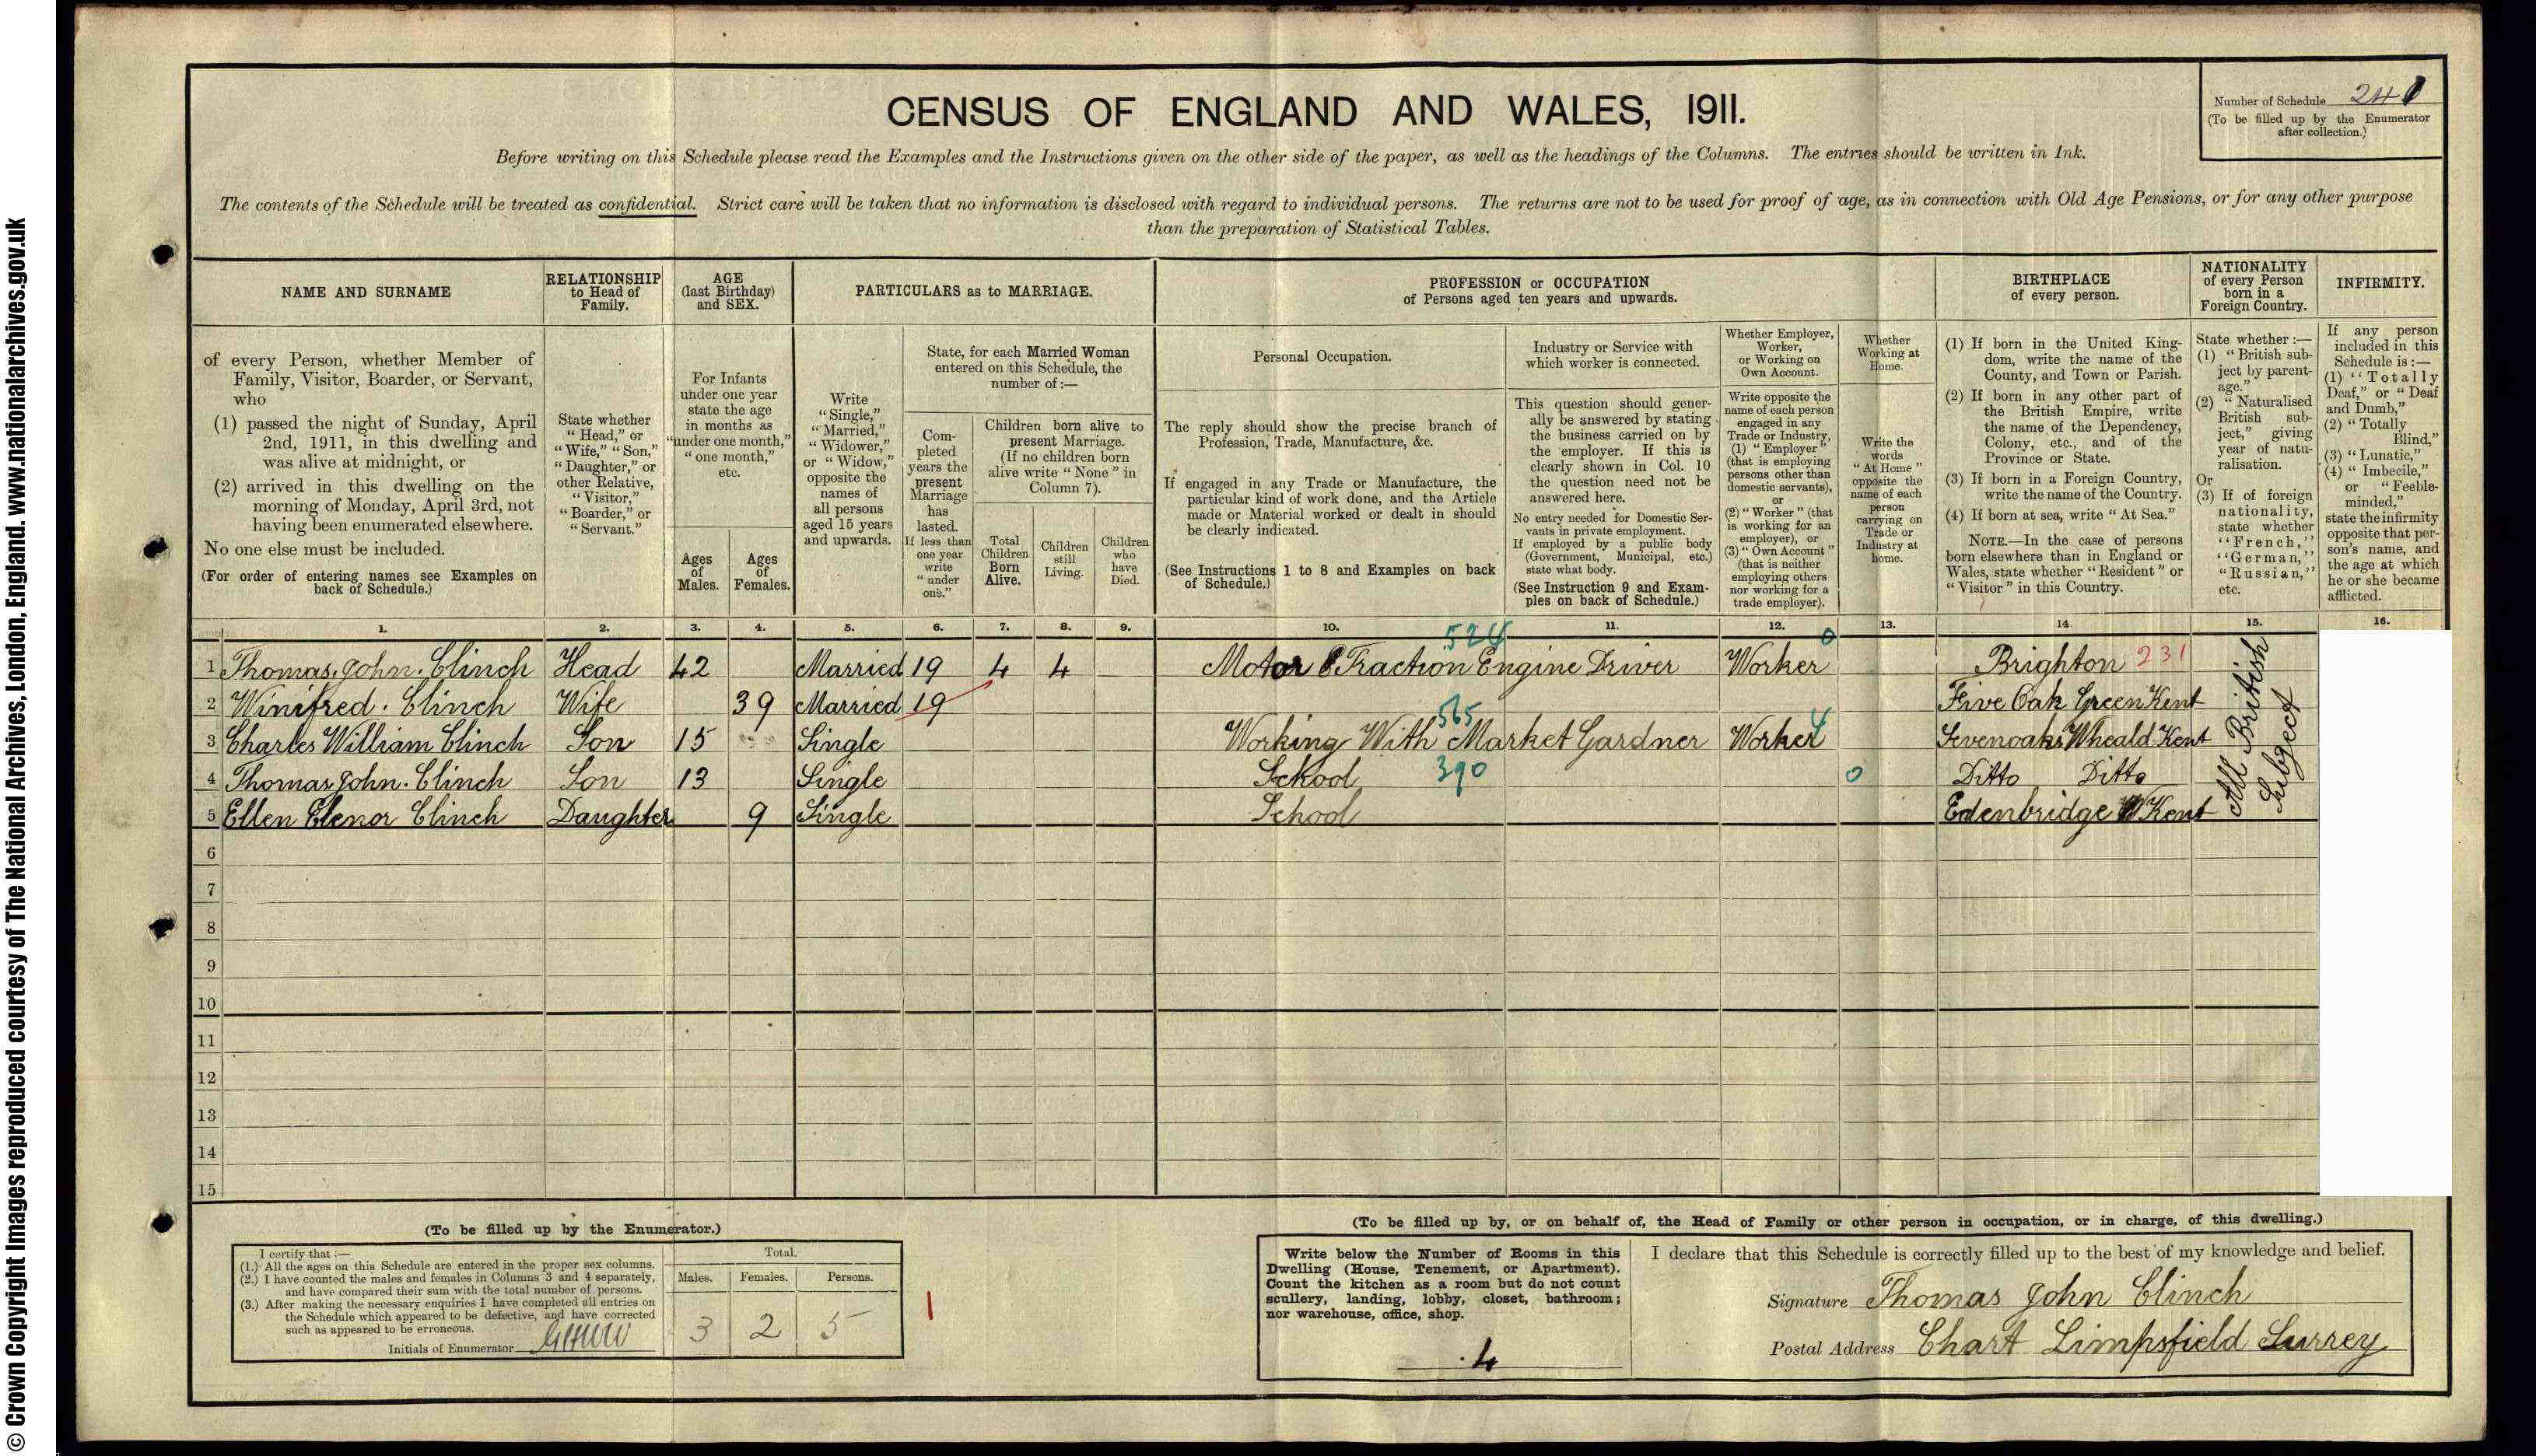 © Crown Copyright Images reproduced courtesy of The National Archives, London, England. www.nationalarchives.gov.uk
CENSUS OF ENGLAND AND WALES, 1911.
Number of Schedule 241
(To be filled up by the Enumerator
after collection.)
Before writing on this Schedule please read the Examples and the Instructions given on the other side of the paper, as well as the headings of the Columns. The entries should be written in Ink.
The contents of the Schedule will be treated as confidential. Strict care will be taken that no information is disclosed with regard to individual persons. The returns are not to be used for proof of age, as in connection with Old Age Pensions, or for any other purpose
than the preparation of Statistical Tables.
NAME AND SURNAME
of every Person, whether Member of
Family, Visitor, Boarder, or Servant,
who
(1) passed the night of Sunday, April
2nd, 1911, in this dwelling and
was alive at midnight, or
(2) arrived in this dwelling on the
morning of Monday, April 3rd, not
having been enumerated elsewhere.
No one else must be included.
(For order of entering names see Examples on
back of Schedule.)
RELATIONSHIP
to Head of
Family.
State whether
“Head,” or
“Wife,” “Son,”
“Daughter,” or
other Relative,
“Visitor,”
“Boarder,” or
“Servant.”
AGE
(last Birthday)
and SEX.
For Infants
under one year
state the age
in months as
“under one month,”
“one month,”
etc.
Ages
of
Males.
Ages
of
Females.
PARTICULARS as to MARRIAGE.
Write
“Single,”
“Married,”
“Widower,”
or “Widow,”
opposite the
names of
all persons
aged 15 years
and upwards.
State, for each Married Woman
entered on this Schedule, the
number of :—
Com-
pleted
years the
present
Marriage
has
lasted.
If less than
one year
write
“under
one.”
Children born alive to
present Marriage.
(If no children born
alive write “None” in
Column 7).
Total
Children
Born
Alive.
Children
still
Living.
Children
who
have
Died.
PROFESSION or OCCUPATION
of Persons aged ten years and upwards.
Personal Occupation.
The reply should show the precise branch of
Profession, Trade, Manufacture, &c.
If engaged in any Trade or Manufacture, the
particular kind of work done, and the Article
made or Material worked or dealt in should
be clearly indicated.
(See Instructions 1 to 8 and Examples on back
of Schedule.)
Industry or Service with
which worker is connected.
This question should gener-
ally be answered by stating
the business carried on by
the employer. If this is
clearly shown in Col. 10
the question need not be
answered here.
No entry needed for Domestic Ser-
vants in private employment.
If employed by a public body
(Government, Municipal, etc.)
state what body.
(See Instruction 9 and Exam-
ples on back of Schedule.)
Whether Employer,
Worker,
or Working on
Own Account.
Write opposite the
name of each person
engaged in any
Trade or Industry,
(1) “Employer”
(that is employing
persons other than
domestic servants),
or
(2) “Worker” (that
is working for an
employer), or
(3) “Own Account”
(that is neither
employing others
nor working for a
trade employer).
Whether
Working at
Home.
Write the
words
“At Home”
opposite the
name of each
person
carrying on
Trade or
Industry at
home.
BIRTHPLACE
of every person.
(1) If born in the United King-
dom, write the name of the
County, and Town or Parish.
(2) If born in any other part of
the British Empire, write
the name of the Dependency,
Colony, etc., and of the
Province or State.
(3) If born in a Foreign Country,
write the name of the Country.
(4) If born at sea, write “At Sea.”
NOTE.—In the case of persons
born elsewhere than in England or
Wales, state whether “Resident” or
“Visitor” in this Country.
NATIONALITY
of every Person
born in a
Foreign Country.
State whether :—
(1) “British sub-
ject by parent-
age.”
(2) “Naturalised
British sub-
ject,” giving
year of natu-
ralisation.
Or
(3) If of foreign
nationality,
state whether
“French,”
“German,”
“Russian,”
etc.
INFIRMITY.
If any person
included in this
Schedule is :—
(1) “Totally
Deaf,” or “Deaf
and Dumb,”
(2) “Totally
Blind,”
(3) “Lunatic,”
(4) “Imbecile,”
or “Feeble-
minded,”
state the infirmity
opposite that per-
son's name, and
the age at which
he or she became
afflicted.
1. 2. 3. 4. 5. 6. 7. 8. 9. 10. 11. 12. 13. 14. 15. 16.
524 0
1 Thomas John Clinch Head 42 Married 19 4 4 Motor & Traction Engine Driver Worker Brighton 231
2 Winifred Clinch Wife 39 Married 19 Five Oak Green Kent
565 4
3 Charles William Clinch Son 15 Single Working With Market Gardner Worker Sevenoaks Wheald Kent
4 Thomas John Clinch Son 13 Single School 390 0 Ditto Ditto
5 Ellen Elenor Clinch Daughter 9 Single School Edenbridge Kent
All British
Subject
6
7
8
9
10
11
12
13
14
15
(To be filled up by the Enumerator.)
I certify that :—
(1.) All the ages on this Schedule are entered in the proper sex columns.
(2.) I have counted the males and females in Columns 3 and 4 separately,
and have compared their sum with the total number of persons.
(3.) After making the necessary enquiries I have completed all entries on
the Schedule which appeared to be defective, and have corrected
such as appeared to be erroneous.
Initials of Enumerator
Total.
Males. Females. Persons.
3 2 5
1
(To be filled up by, or on behalf of, the Head of Family or other person in occupation, or in charge, of this dwelling.)
Write below the Number of Rooms in this
Dwelling (House, Tenement, or Apartment).
Count the kitchen as a room but do not count
scullery, landing, lobby, closet, bathroom;
nor warehouse, office, shop.
4
I declare that this Schedule is correctly filled up to the best of my knowledge and belief.
Signature Thomas John Clinch
Postal Address Chart Limpsfield Surrey